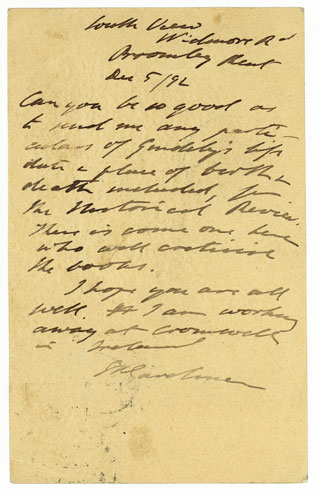 South View
Widmore Rd
Bromley Kent
Dec 5/92
Can you be so good as
to send me any parti-
culars of Gindely's life
date & place of birth &
death included, for
the Historical Review.
There is some one here
who will criticise
the books.
I hope you are all
well. I am working
away at Cromwell
in Ireland
S R Gardiner